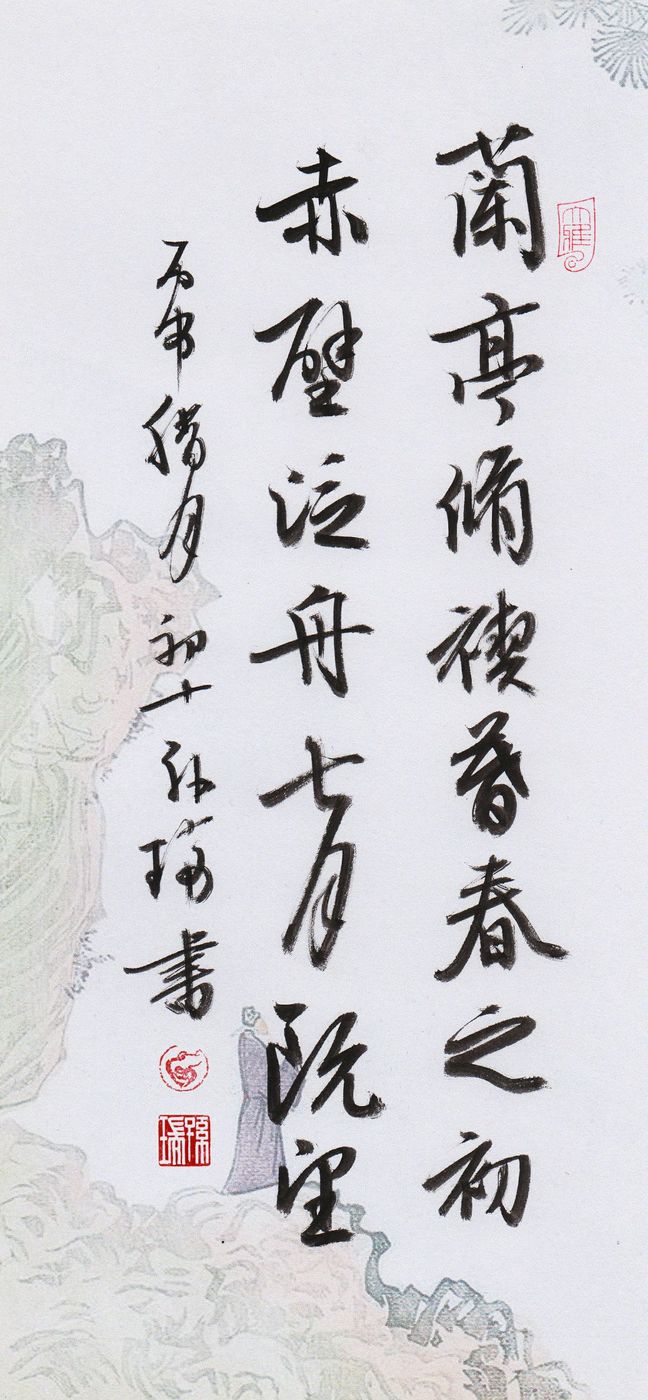 蘭亭脩禊暮春之初
赤壁泛舟七月既望
丙申腊月初十孙瑞書
孫瑞